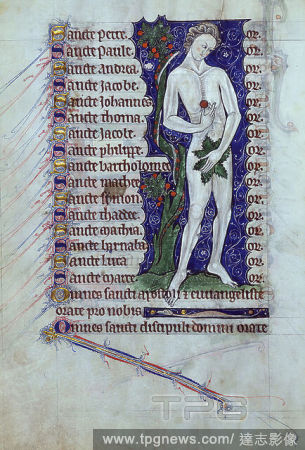 Sancte petre. or.
Sancte paule
Sancte andrea. or.
Sancte Jacobe. or.
Sancte Johannes or.
Sancte thoma. or.
Sancte Jacobe. or.
Sancte philippe. or.
Sancte bartholome or.
Sancte mathee or.
Sancte symon or.
Sancte thadee. or.
Sancte mathia. or.
Sancte bernaba or.
Sancte luca or.
Sancte marce or.
Omnes sancti apostoli & euuangeliste
orate pro nobis
Omnes sancti discipuli domini orate
TPG
www.tpgnews.com/達志影像